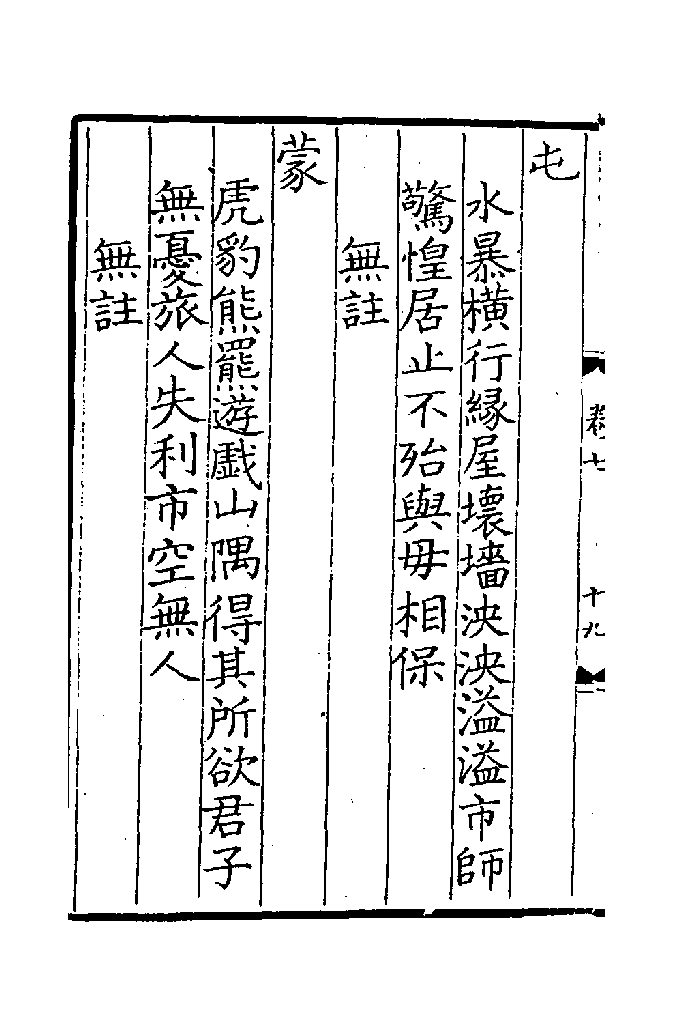 屯
水暴橫行緣屋壞墻泱泱溢溢市師
驚惶居止不殆與毋相保
無註
蒙
虎豹熊羆遊戲山隅得其所欲君子
無憂旅人失利市空無人
無註
卷七
十九